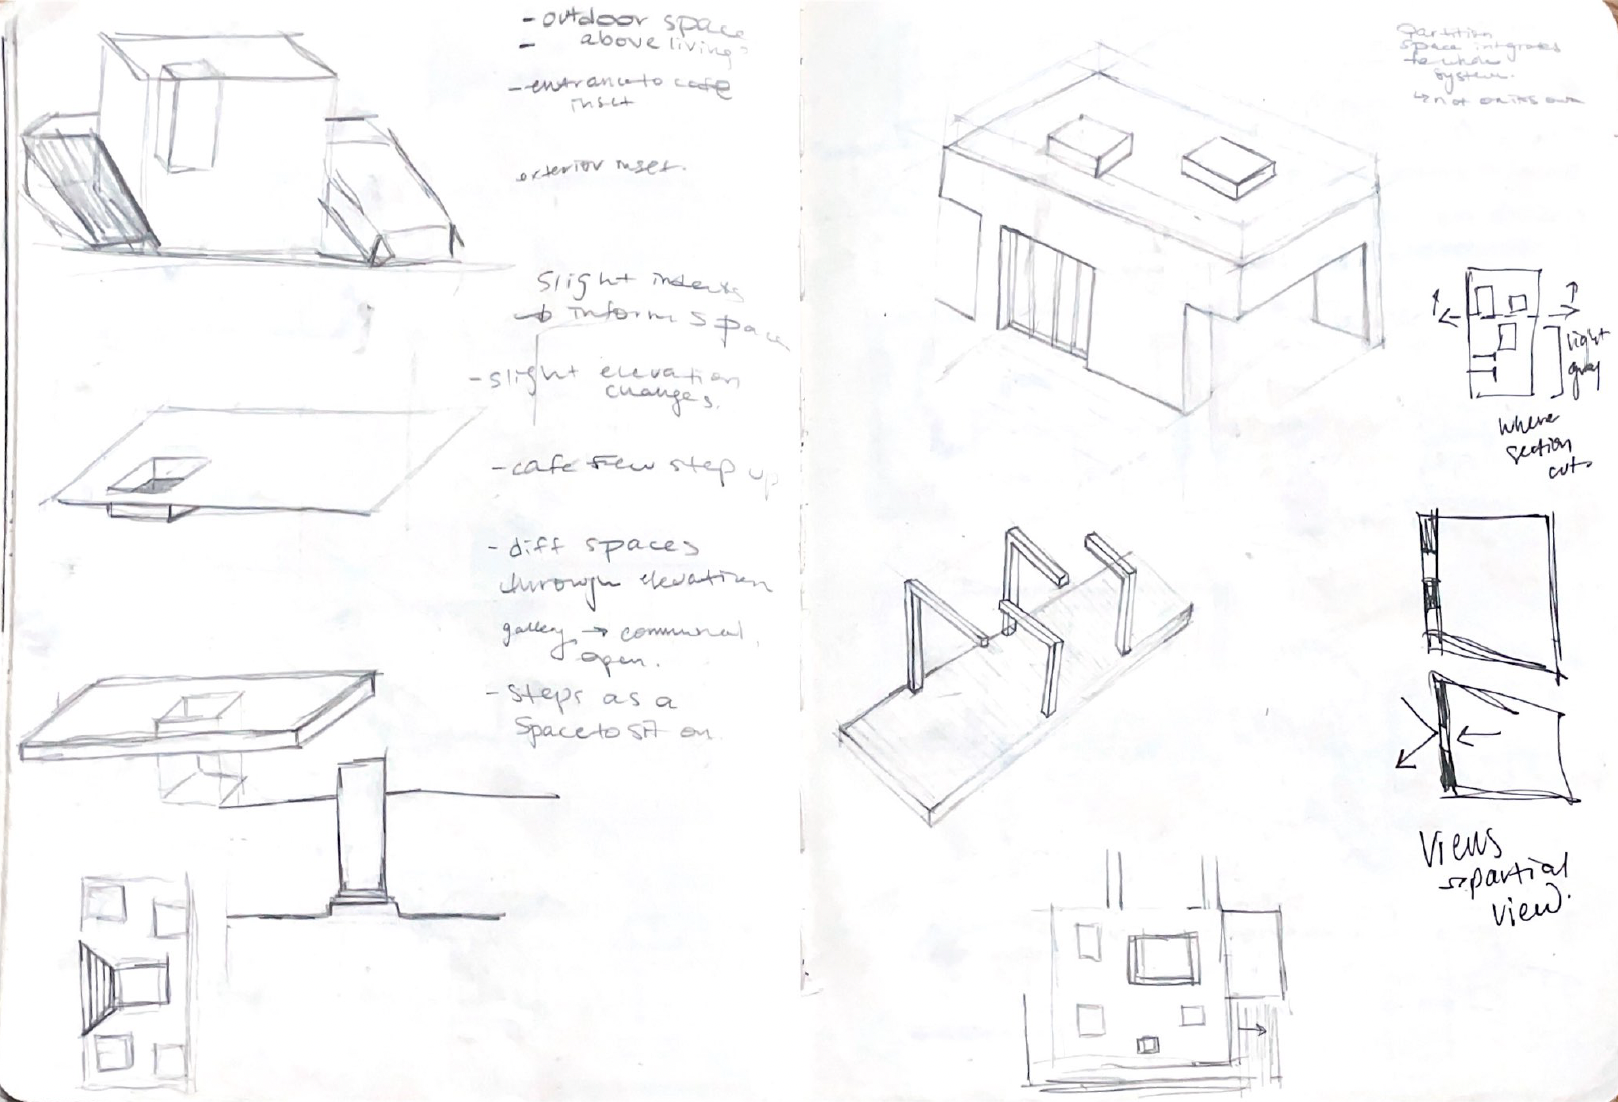 - outdoor space
- above living?
- entrance to cafe
inset
exterior inset.
slight indents
→ inform space
- slight elevation
changes.
- cafe few step up
- diff spaces
through elevation
gallery → communal,
open.
- steps as a
space to sit on.
Partition
space integrates
to whole
system.
↳ not on its own
light
gray
where
section
cuts
Views
→ partial
view.